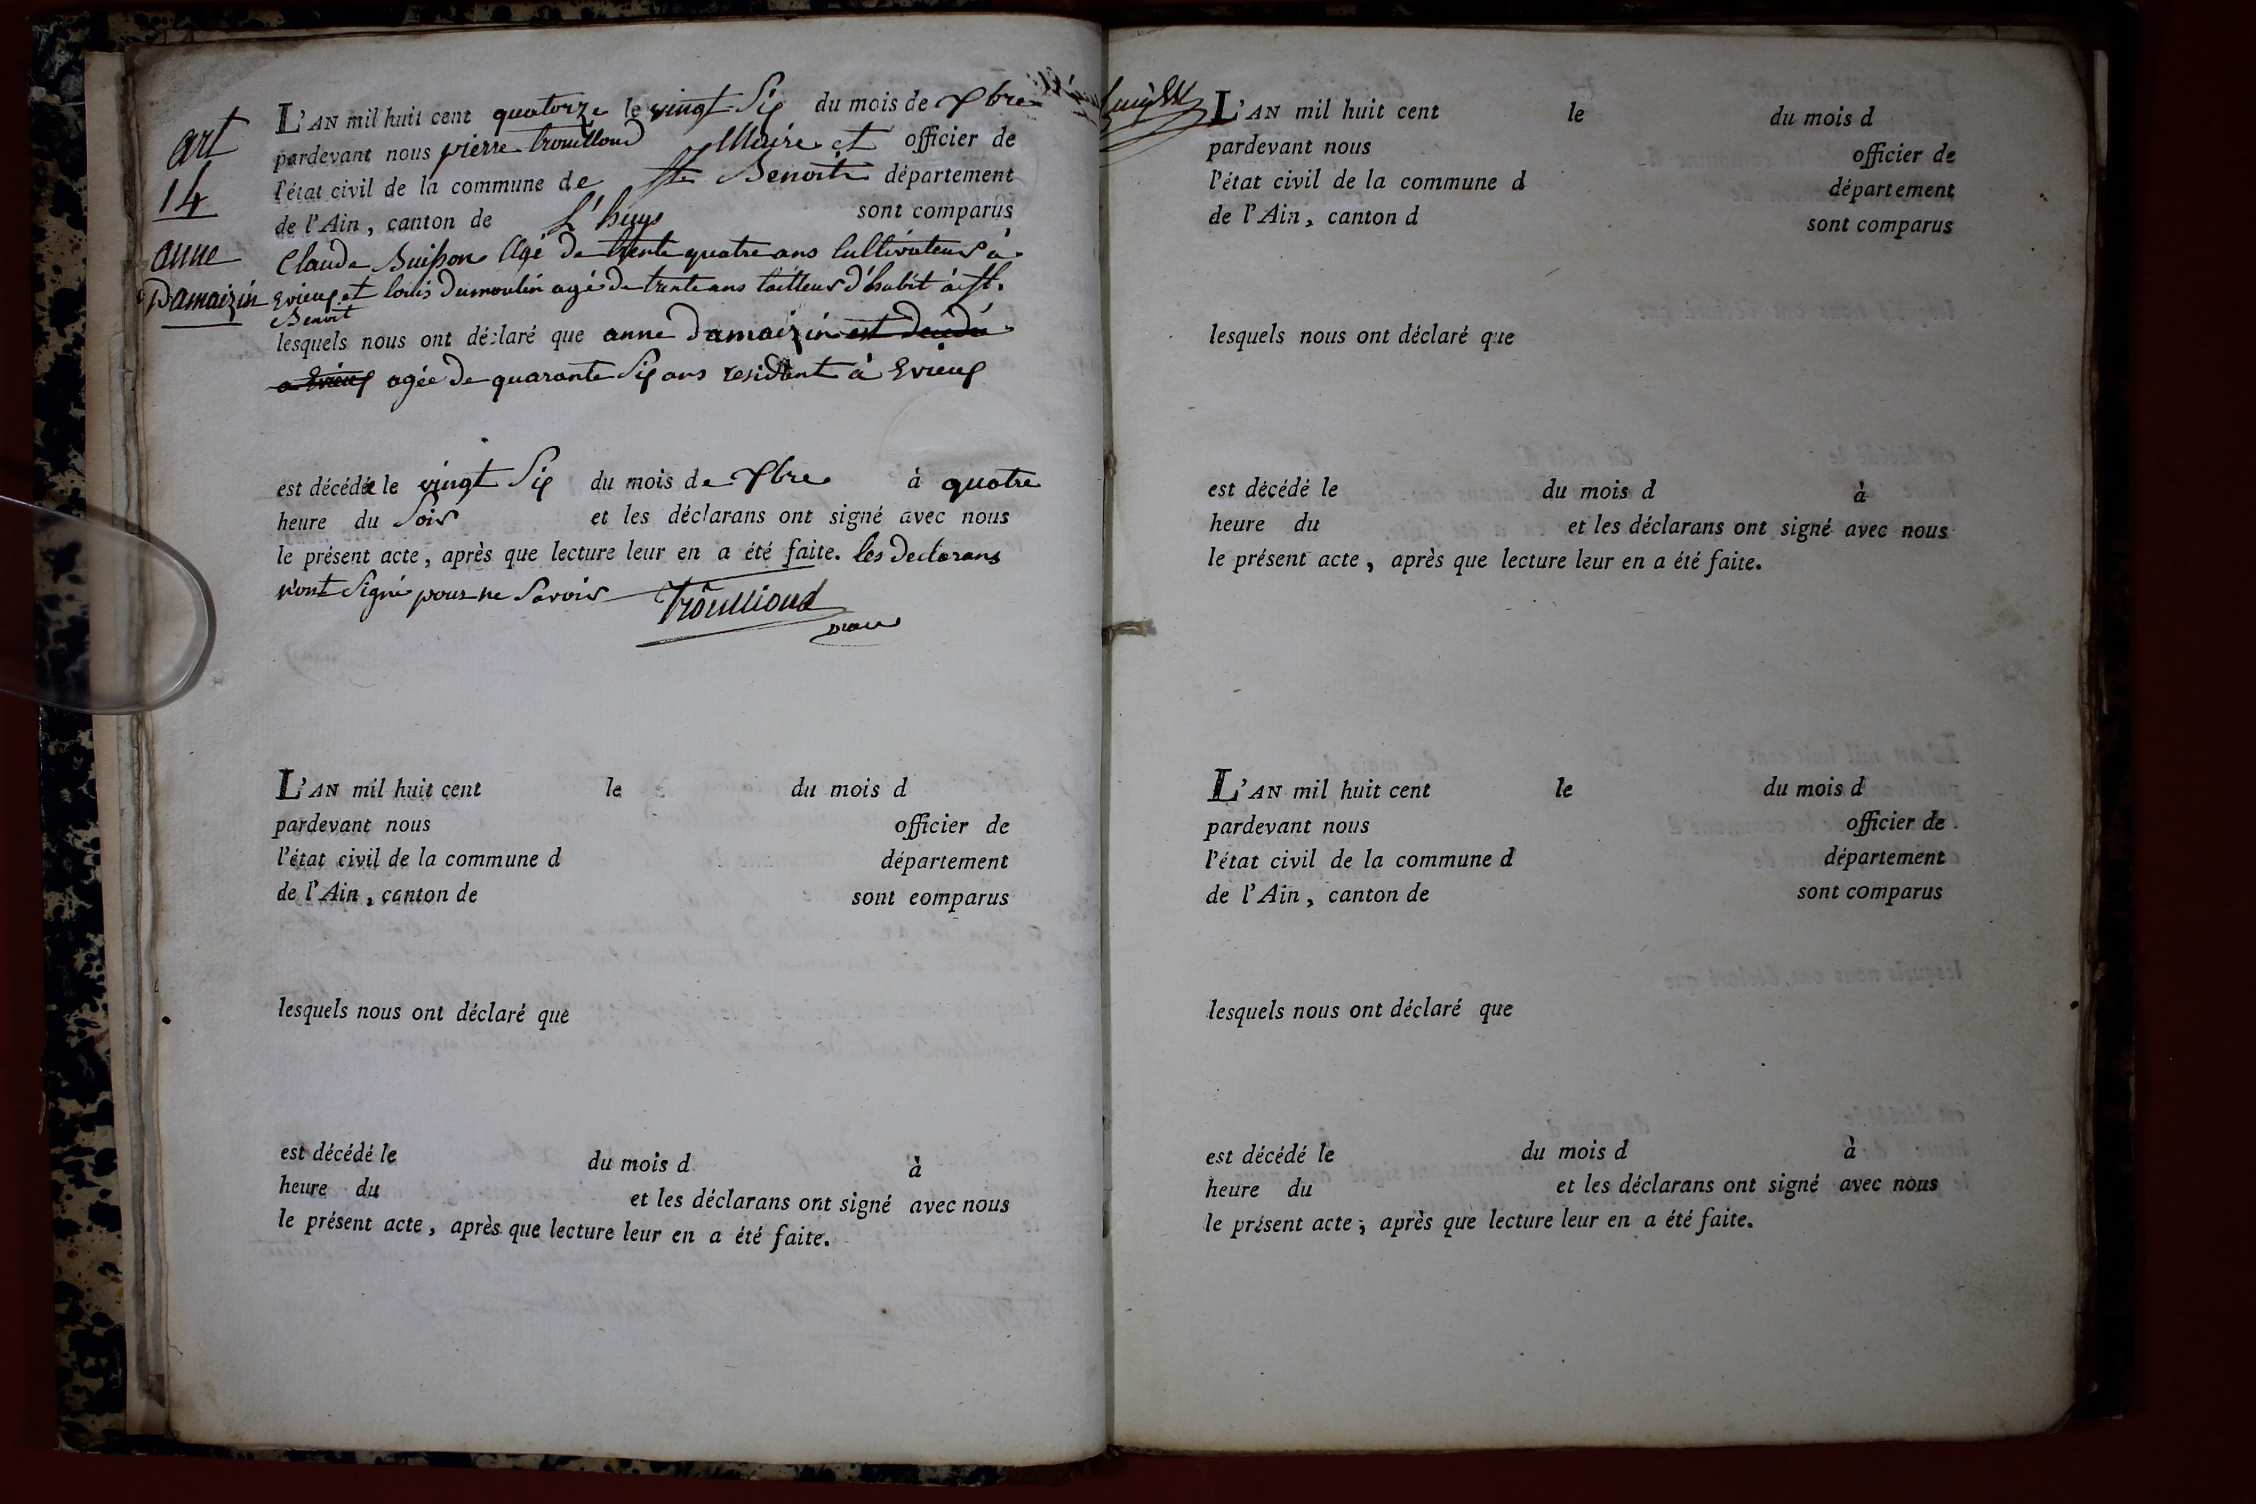 art
14
anne
Damaizin
L'AN mil huit cent quatorze le vingt Six du mois de Xbre
pardevant nous pierre trouilloud Maire et officier de
l'état civil de la commune de St Benoit département
de l'Ain, canton de L'huys sont comparus
Claude Buisson Agé de trente quatre ans Cultivateur à
Evieux et louis Dumoulin agé de trente ans tailleur d'habit à St.
Benoit
lesquels nous ont déclaré que anne Damaizin est décédé
a Evieux agée de quarante Six ans residant à Evieux
est décédée le vingt Six du mois de Xbre à quatre
heure du Soir et les déclarans ont signé avec nous
le présent acte, après que lecture leur en a été faite. les declarans
n'ont Signé pour ne Savoir Trouilloud
maire
L'AN mil huit cent le du mois d
pardevant nous officier de
l'état civil de la commune d département
de l'Ain, canton de sont eomparus
lesquels nous ont déclaré que
est décédé le du mois d à
heure du et les déclarans ont signé avec nous
le présent acte, après que lecture leur en a été faite.
L'AN mil huit cent le du mois d
pardevant nous officier de
l'état civil de la commune d département
de l'Ain, canton d sont comparus
lesquels nous ont déclaré que
est décédé le du mois d à
heure du et les déclarans ont signé avec nous
le présent acte, après que lecture leur en a été faite.
L'AN mil huit cent le du mois d
pardevant nous officier de
l'état civil de la commune d département
de l'Ain, canton de sont comparus
lesquels nous ont déclaré que
est décédé le du mois d à
heure du et les déclarans ont signé avec nous
le présent acte, après que lecture leur en a été faite.